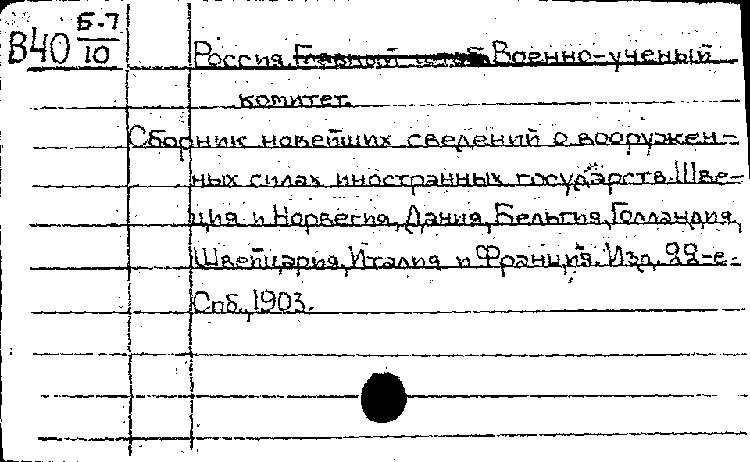 В40 Б-7/10
Россия. Главный штаб. Военно-ученый
комитет.
Сборник новейших сведений о вооружен-
ных силах иностранных государств. Шве-
ция и Норвегия, Дания, Бельгия, Голландия,
Швейцария, Италия и Франция. Изд. 22-е.
Спб., 1903.